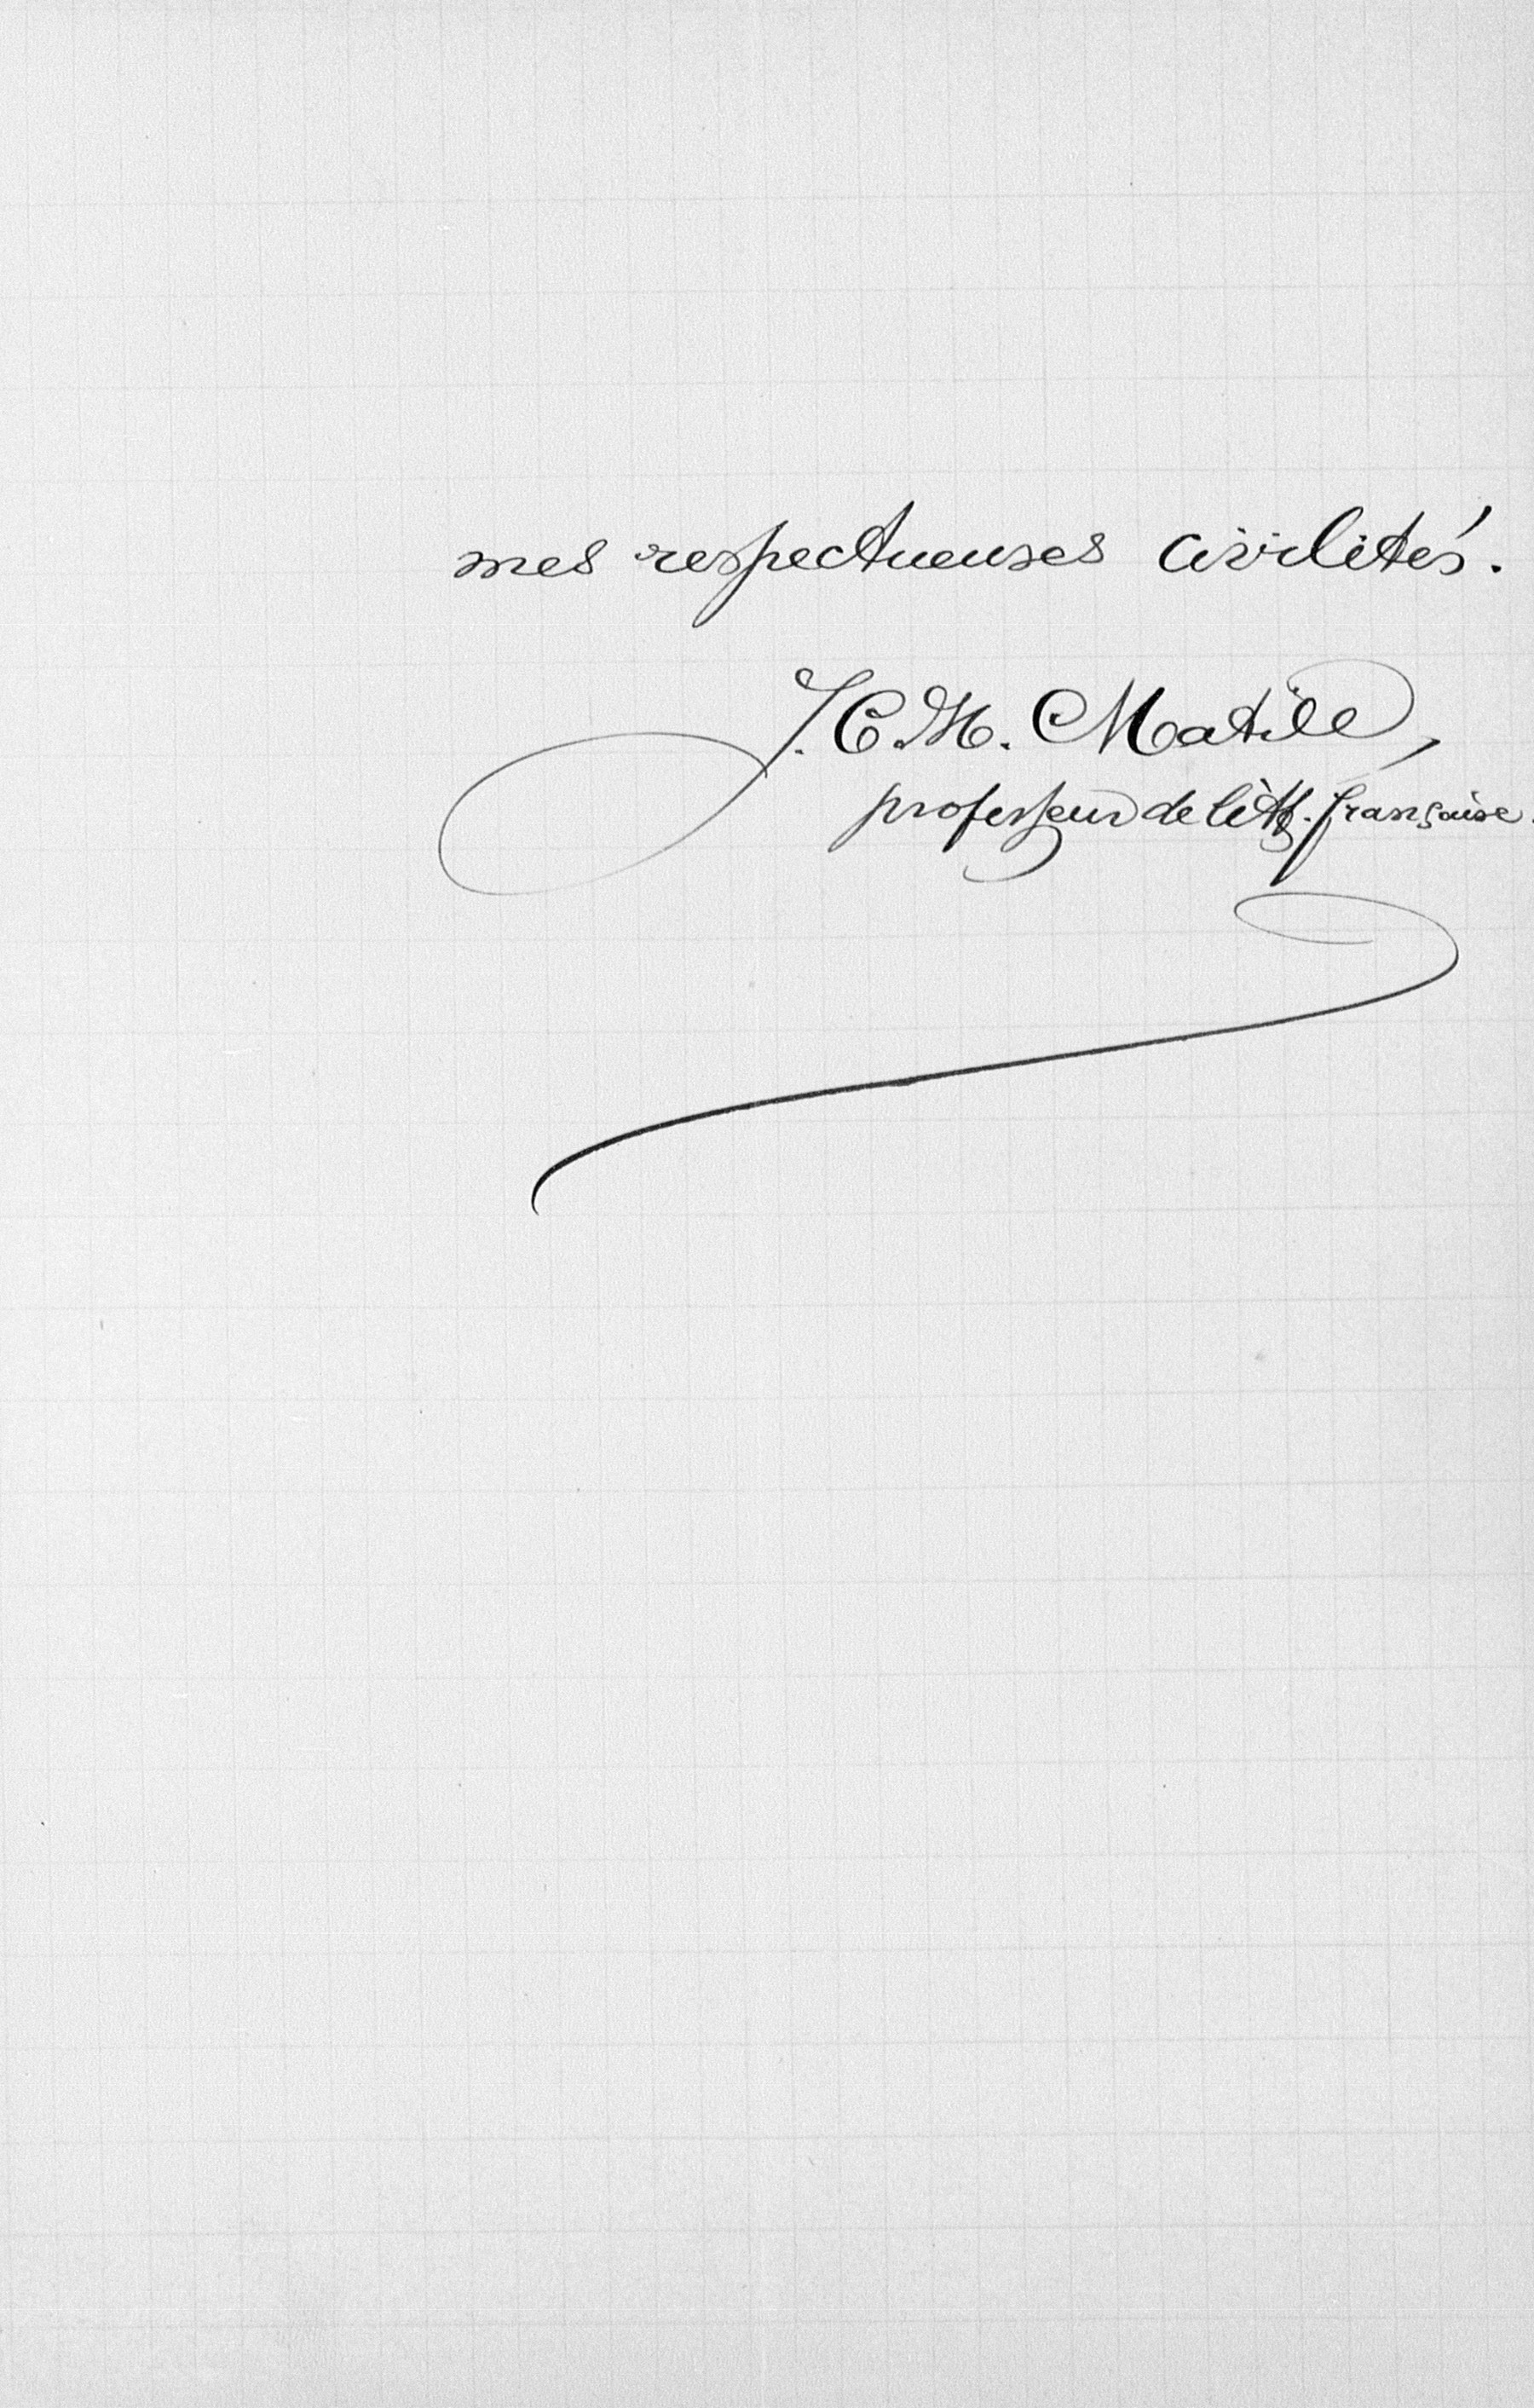 mes respectueuses civilités.
J. C. H. Matile,
professeur de litt. française.